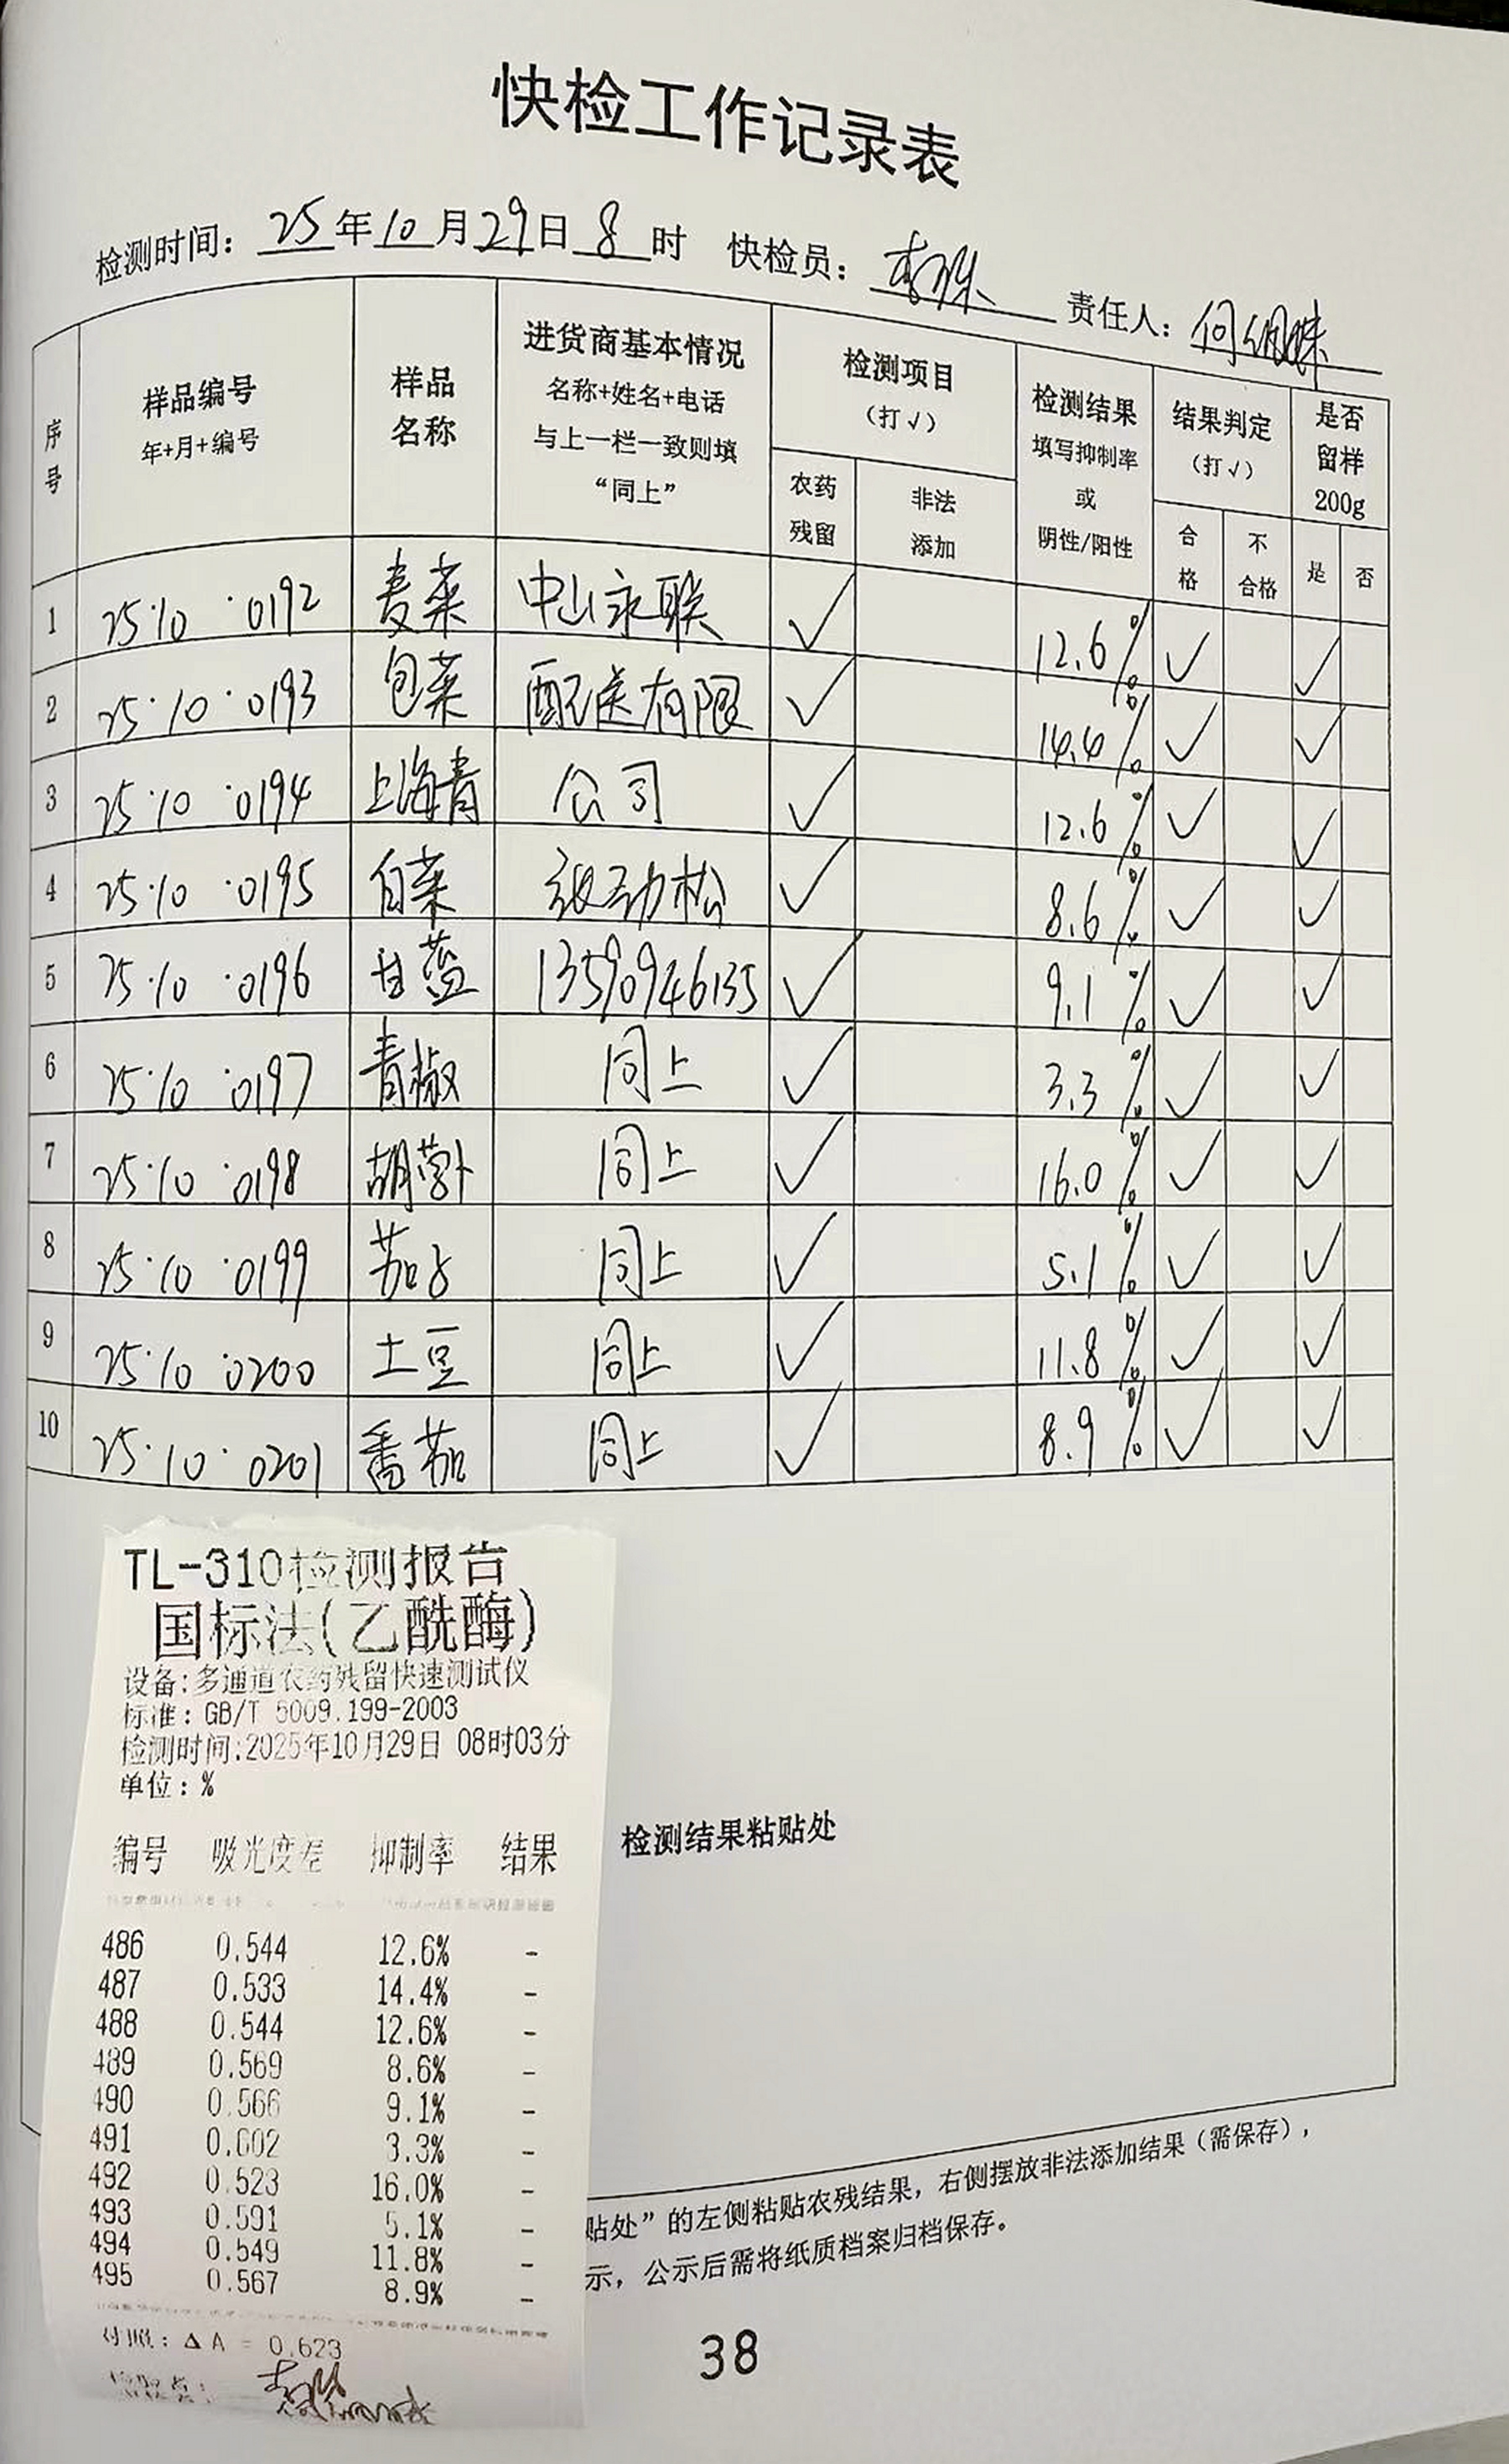 快检工作记录表
检测时间: 25年10月29日8时 快检员: 责任人:
序号 样品编号 年+月+编号 样品名称 进货商基本情况 名称+姓名+电话 与上一栏一致则填“同上” 检测项目(打√) 农药残留 非法添加 检测结果 填写抑制率或阴性/阳性 结果判定(打√) 合格 不合格 是否留样200g 是 否
1 25·10·0192 麦菜 中山永联 √ 12.6% √ √
2 25·10·0193 包菜 配送有限 √ 14.4% √ √
3 25·10·0194 上海青 公司 √ 12.6% √ √
4 25·10·0195 白菜 张劲松 √ 8.6% √ √
5 25·10·0196 甘蓝 13590946135 √ 9.1% √ √
6 25·10·0197 青椒 同上 √ 3.3% √ √
7 25·10·0198 胡萝卜 同上 √ 16.0% √ √
8 25·10·0199 茄子 同上 √ 5.1% √ √
9 25·10·0200 土豆 同上 √ 11.8% √ √
10 25·10·0201 番茄 同上 √ 8.9% √ √
TL-310检测报告
国标法(乙酰酶)
设备:多通道农药残留快速测试仪
标准: GB/T 5009.199-2003
检测时间:2025年10月29日 08时03分
单位: %
编号 吸光度差 抑制率 结果
486 0.544 12.6% -
487 0.533 14.4% -
488 0.544 12.6% -
489 0.569 8.6% -
490 0.566 9.1% -
491 0.602 3.3% -
492 0.523 16.0% -
493 0.591 5.1% -
494 0.549 11.8% -
495 0.567 8.9% -
对照: ΔA = 0.623
检测结果粘贴处
贴处”的左侧粘贴农残结果，右侧摆放非法添加结果（需保存），
示，公示后需将纸质档案归档保存。
38